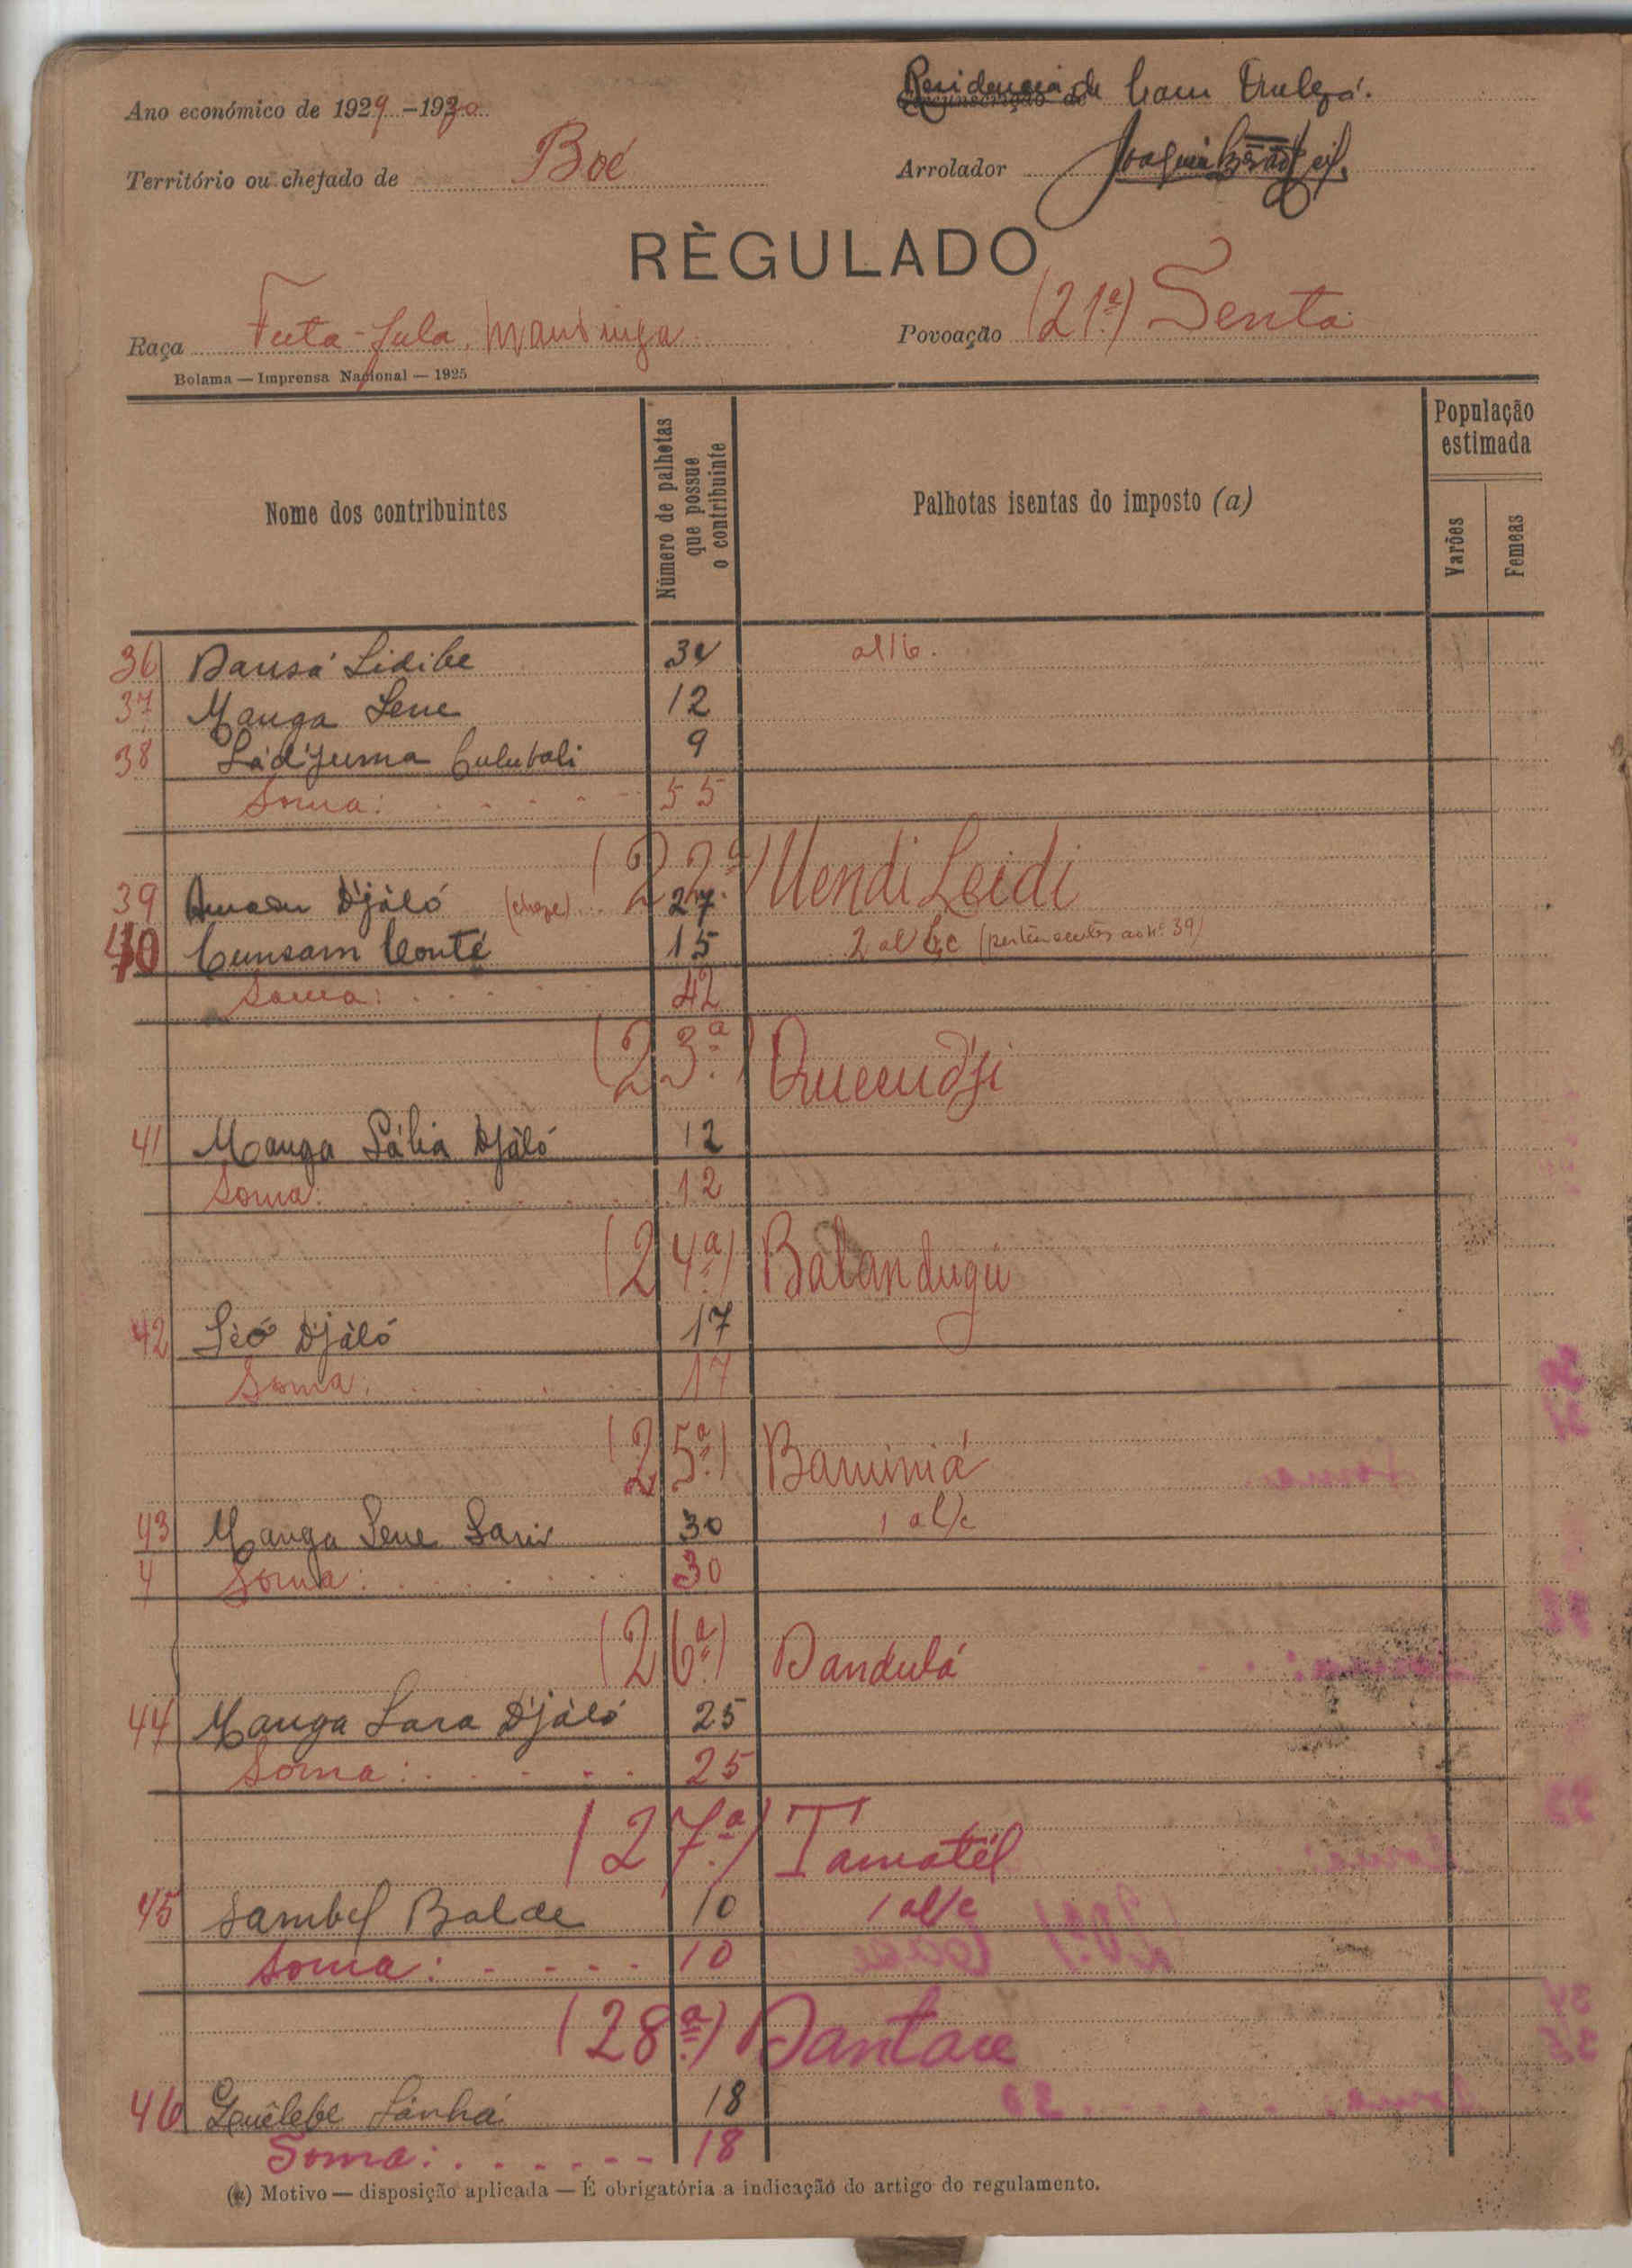 Ano económico de 1929-1930
Residencia de
Circunscrição de
Território ou chefado de Boé
Arrolador Joaquim
RÈGULADO
Raça Futa-fula, Mandinga
Povoação (21.ª) Senta
Bolama — Imprensa Nacional — 1925
Nome dos contribuintes
Número de palhotas que possue o contribuinte
Palhotas isentas do imposto (a)
População estimada
Varões
Femeas
36 Dansá Lidibe 34
37 Manga Sene 12
38 Ládjuma Culubali 9
Soma: 55
(22.ª) Uendi Leidi
39 Amadu Djàló (chefe) 27
40 Cunsam Conté 15 2 al (pertencentes ao nº 39)
Soma: 42
(23.ª)
41 Manga Sália Djàló 12
Soma: 12
(24.ª) Balandugú
42 Djàló 17
Soma: 17
(25.ª) Baminiá
43 Manga Sene Sani 30 1 al/c
4 Soma: 30
(26.ª) Dandulá
44 Manga Sara Djàló 25
Soma: 25
(27.ª) Tamatél
45 Sambel Balde 10 1 al/c
Soma: 10
(28.ª) Dantare
46 Sánhá 18
Soma: 18
(a) Motivo — disposição aplicada — É obrigatória a indicação do artigo do regulamento.